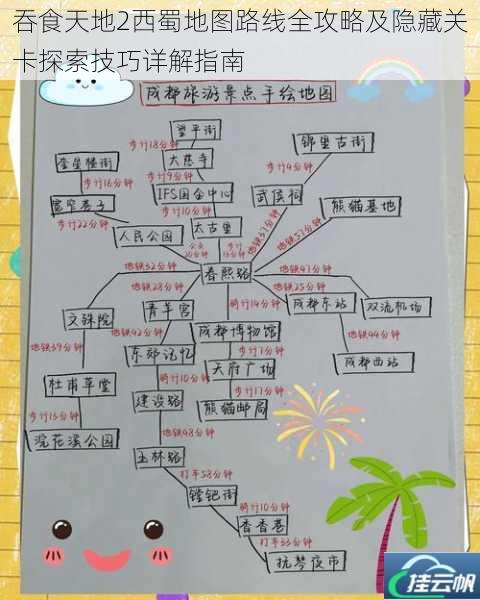 吞食天地2西蜀地图路线全攻略及隐藏关
卡探索技巧详解指南
成都旅游景点手绘地图
望平街
步行18分钟
大慈寺
步行9分钟
IFS国金中心
步行10分钟
太古里
公交20分钟
步行
奎星楼街
步行16分钟
宽窄巷子
步行22分钟
人民公园
锦里古街
步行4分钟
武侯祠
地铁37分钟
熊猫基地
地铁57分钟
春熙路
地铁32分钟
地铁28分钟
骑行14分钟
地铁47分钟
地铁25分钟
文殊院
地铁39分钟
杜甫草堂
步行15分钟
浣花溪公园
青羊宫
东郊记忆
骑行10分钟
建设路
地铁48分钟
玉林路
打车58分钟
镗钯街
骑行10分钟
香香巷
打车33分钟
抚琴夜市
成都博物馆
步行1分钟
天府广场
步行17分钟
熊猫邮局
成都东站
双流机场
地铁44分钟
成都西站
挂云帆